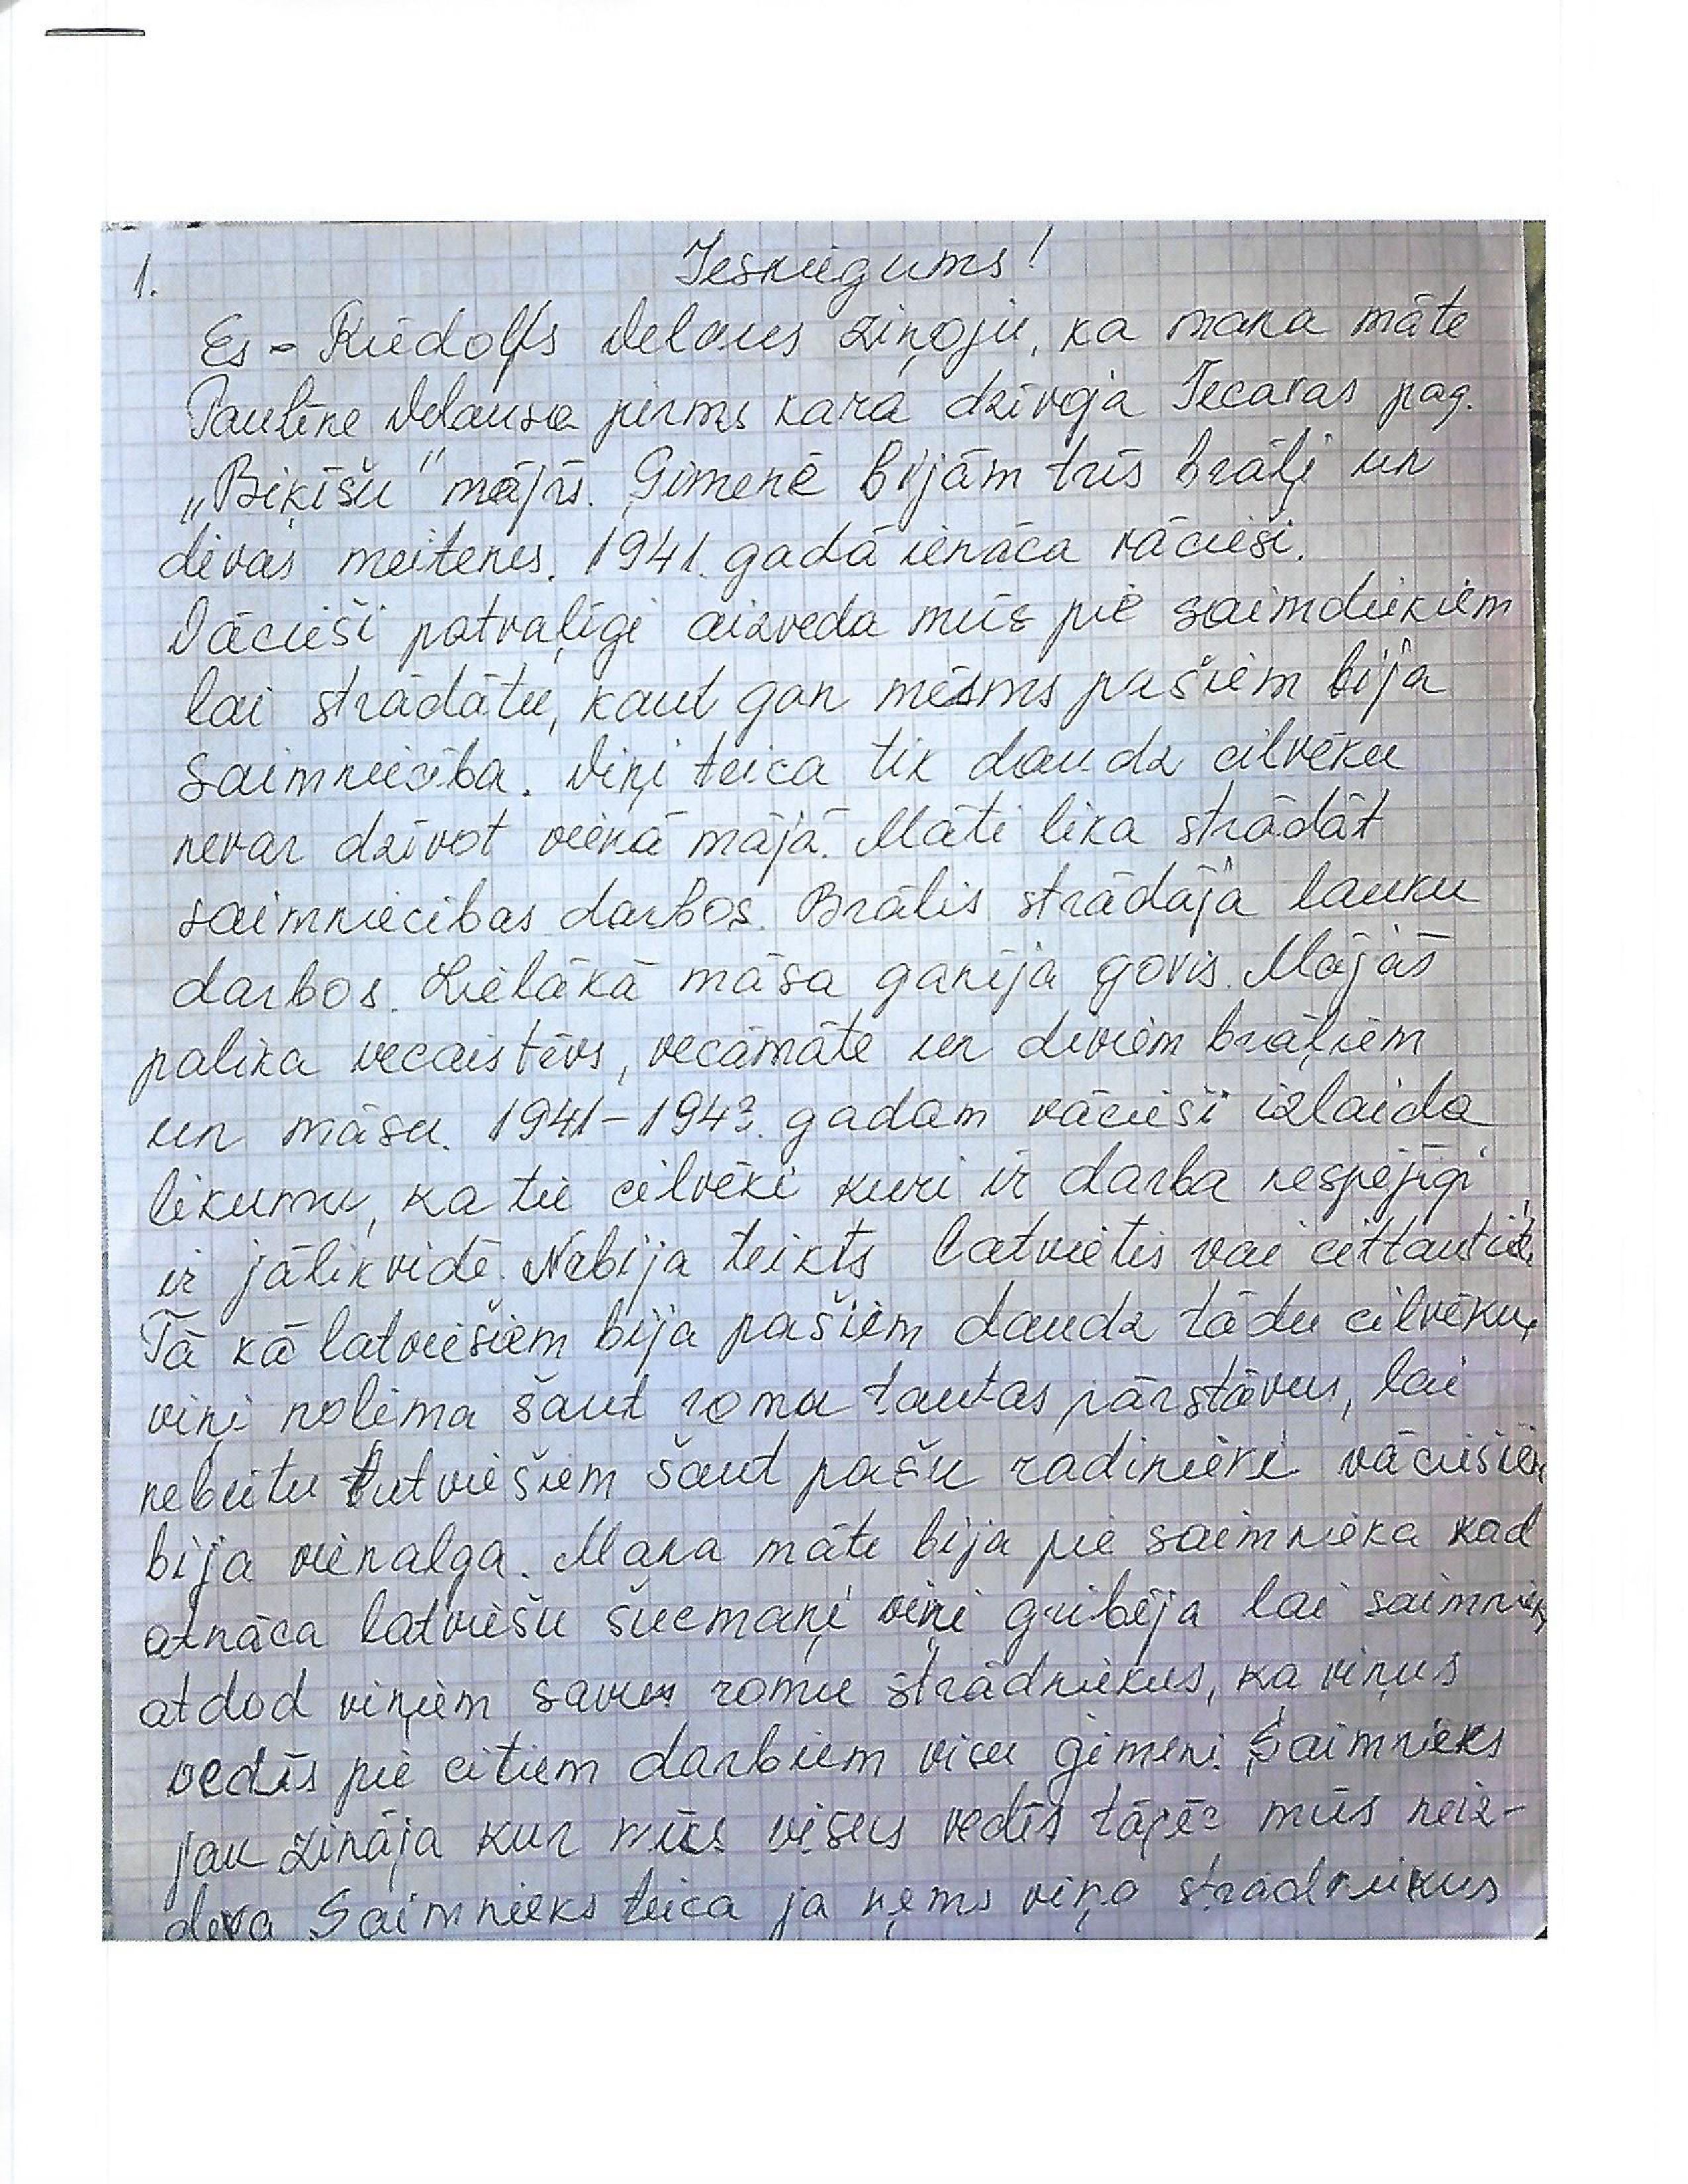 1. Iesniegums!
Es - Rūdolfs Velaus ziņoju, ka mana māte
Paulīne Velausa pirms kara dzīvoja Iecavas pag.
„Biķīšu" mājās. Ģimenē bijām trīs brāļi un
divas meitenes. 1941. gadā ienāca vācieši.
Vācieši patvaļīgi aizveda mūs pie saimniekiem
lai strādātu, kaut gan mēsms pašiem bija
saimniecība. Viņi teica tik daudz cilvēku
nevar dzīvot vienā mājā. Māti lika strādāt
saimniecības darbos. Brālis strādāja lauku
darbos. Lielākā māsa ganīja govis. Mājās
palika vecaistēvs, vecāmāte un diviem brāļiem
un māsu. 1941-1943. gadam vācieši izlaida
likumu, ka tie cilvēki kuri ir darba nespējīgi
ir jālikvidē. Nebija teikts latvietis vai cittautiets.
Tā kā latviešiem bija pašiem daudz tādu cilvēku,
viņi nolēma šaut romu tautas pārstāvus, lai
nebūtu latviešiem šaut pašu radinieki vāciešiem
bija vienalga. Mana māte bija pie saimnieka kad
atnāca latviešu šucmaņi viņi gribēja lai saimnieks
atdod viņiem savus romu strādniekus, ka viņus
vedīs pie citiem darbiem visu ģimeni. Saimnieks
jau zināja kur mūs visus vedīs tāpēc mūs neiz-
deva Saimnieks teica ja ņems viņa strādniekus